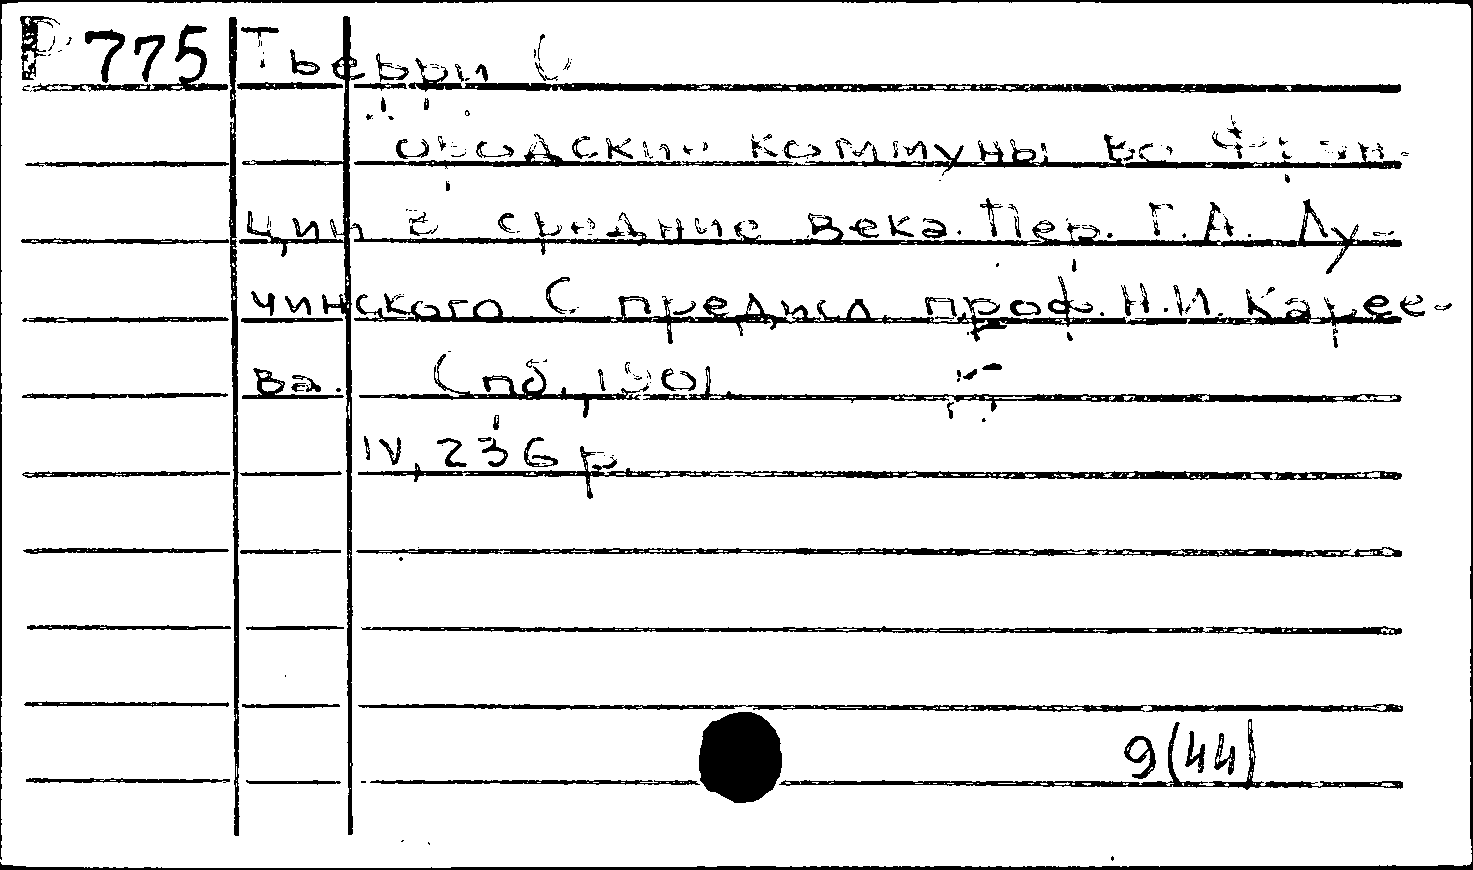 Р 775 Тьерри О
Городские коммуны во Фран-
ции в средние века. Пер. Г.А. Лу-
чинского С предисл. проф. Н.И. Карее-
ва. Спб., 1901.
IV, 236 р.
9(44)